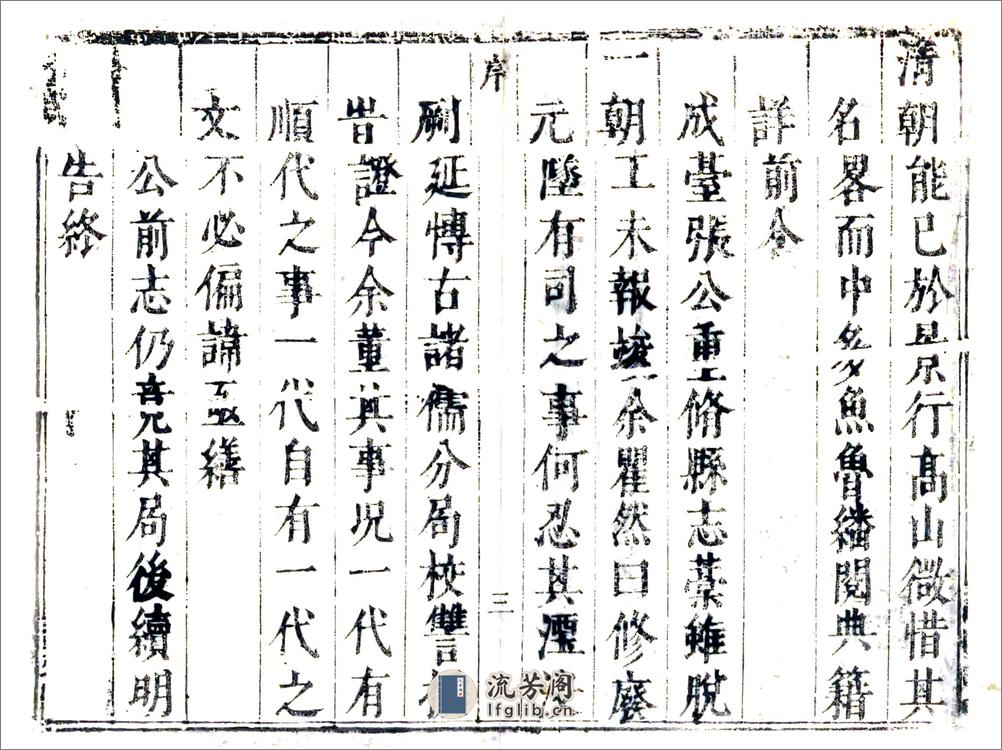 清朝能已於景行高山微惜其
名畧而中多魚魯繙閱典籍
詳前令
成臺張公重修縣志藁雖脫
一朝工未報竣余瞿然曰修廢
元墜有司之事何忍其湮
序
三
劂延慱古諸儒分局校讐
昔證今余董其事况一代有
順代之事一代自有一代之
文不必偏諱亟繕
公前志仍竟其局後續明
告終
流芳阁
lfglib.cn